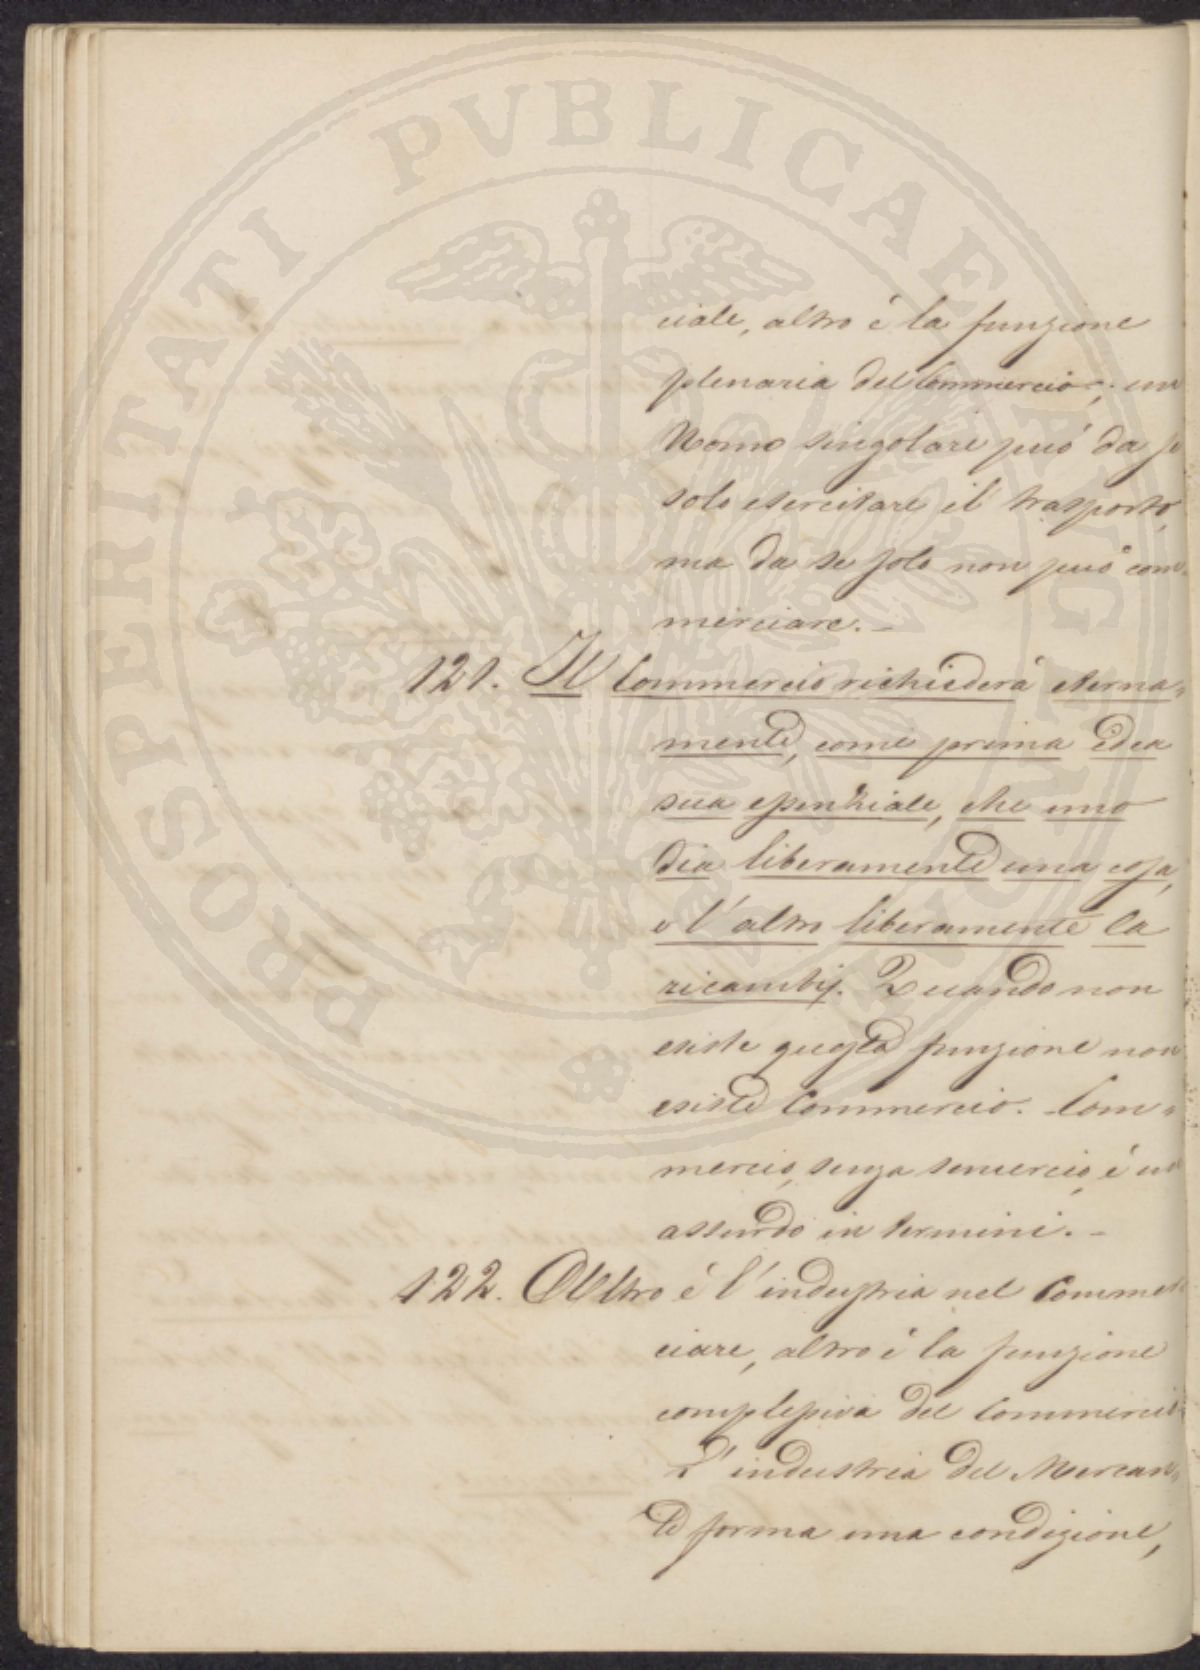 PROSPERITATI PVBLICAE
ciale, altro é la funzione
plenaria del Commercio; un
Uomo singolare può da se
solo esercitare il trasporto,
ma da se solo non può com„
merciare. –
121. Il Commercio richiederà eterna„
mente, come prima idea
sua essenziale, che uno
dia liberamente una cosa,
e l'altro liberamente la
ricambij. Quando non
esiste questa funzione non
esiste Commercio. Com„
mercio, senza
assurdo in termini. –
122. Altro é l'industria nel Commer„
ciare, altro é la funzione
complessiva del Commercio
L'industria del Mercan„
te forma una condizione,